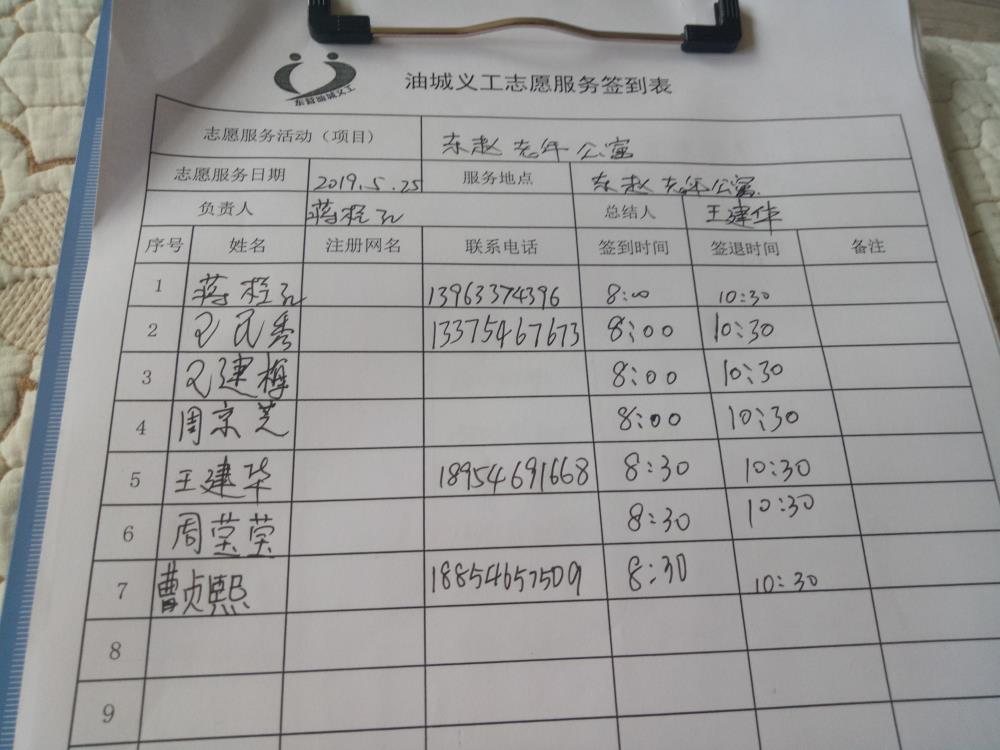 东营油城义工
油城义工志愿服务签到表
志愿服务活动（项目） 东赵老年公寓
志愿服务日期 2019.5.25 服务地点 东赵老年公寓
负责人 蒋 总结人 王建华
序号 姓名 注册网名 联系电话 签到时间 签退时间 备注
1 蒋 13963374396 8:00 10:30
2 王民秀 13375467673 8:00 10:30
3 王建梅 8:00 10:30
4 周京芝 8:00 10:30
5 王建华 18954691668 8:30 10:30
6 周莹莹 8:30 10:30
7 曹贞熙 18854657509 8:30 10:30
8
9